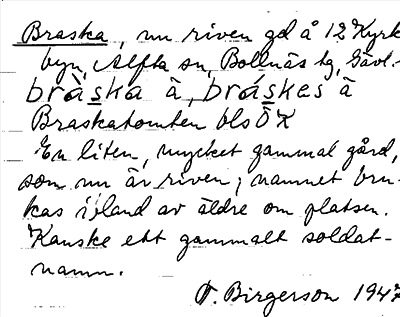 Braska, nu riven gd å 12 Kyrk
byn, Alfta sn, Bollnäs tg, Gävl.
bràska à, bráskes à
Braskatomten bls Ö K
En liten, mycket gammal gård,
som nu är riven; namnet bru-
kas ibland av äldre om platsen.
Kanske ett gammalt soldat-
namn.
Birgerson 1947